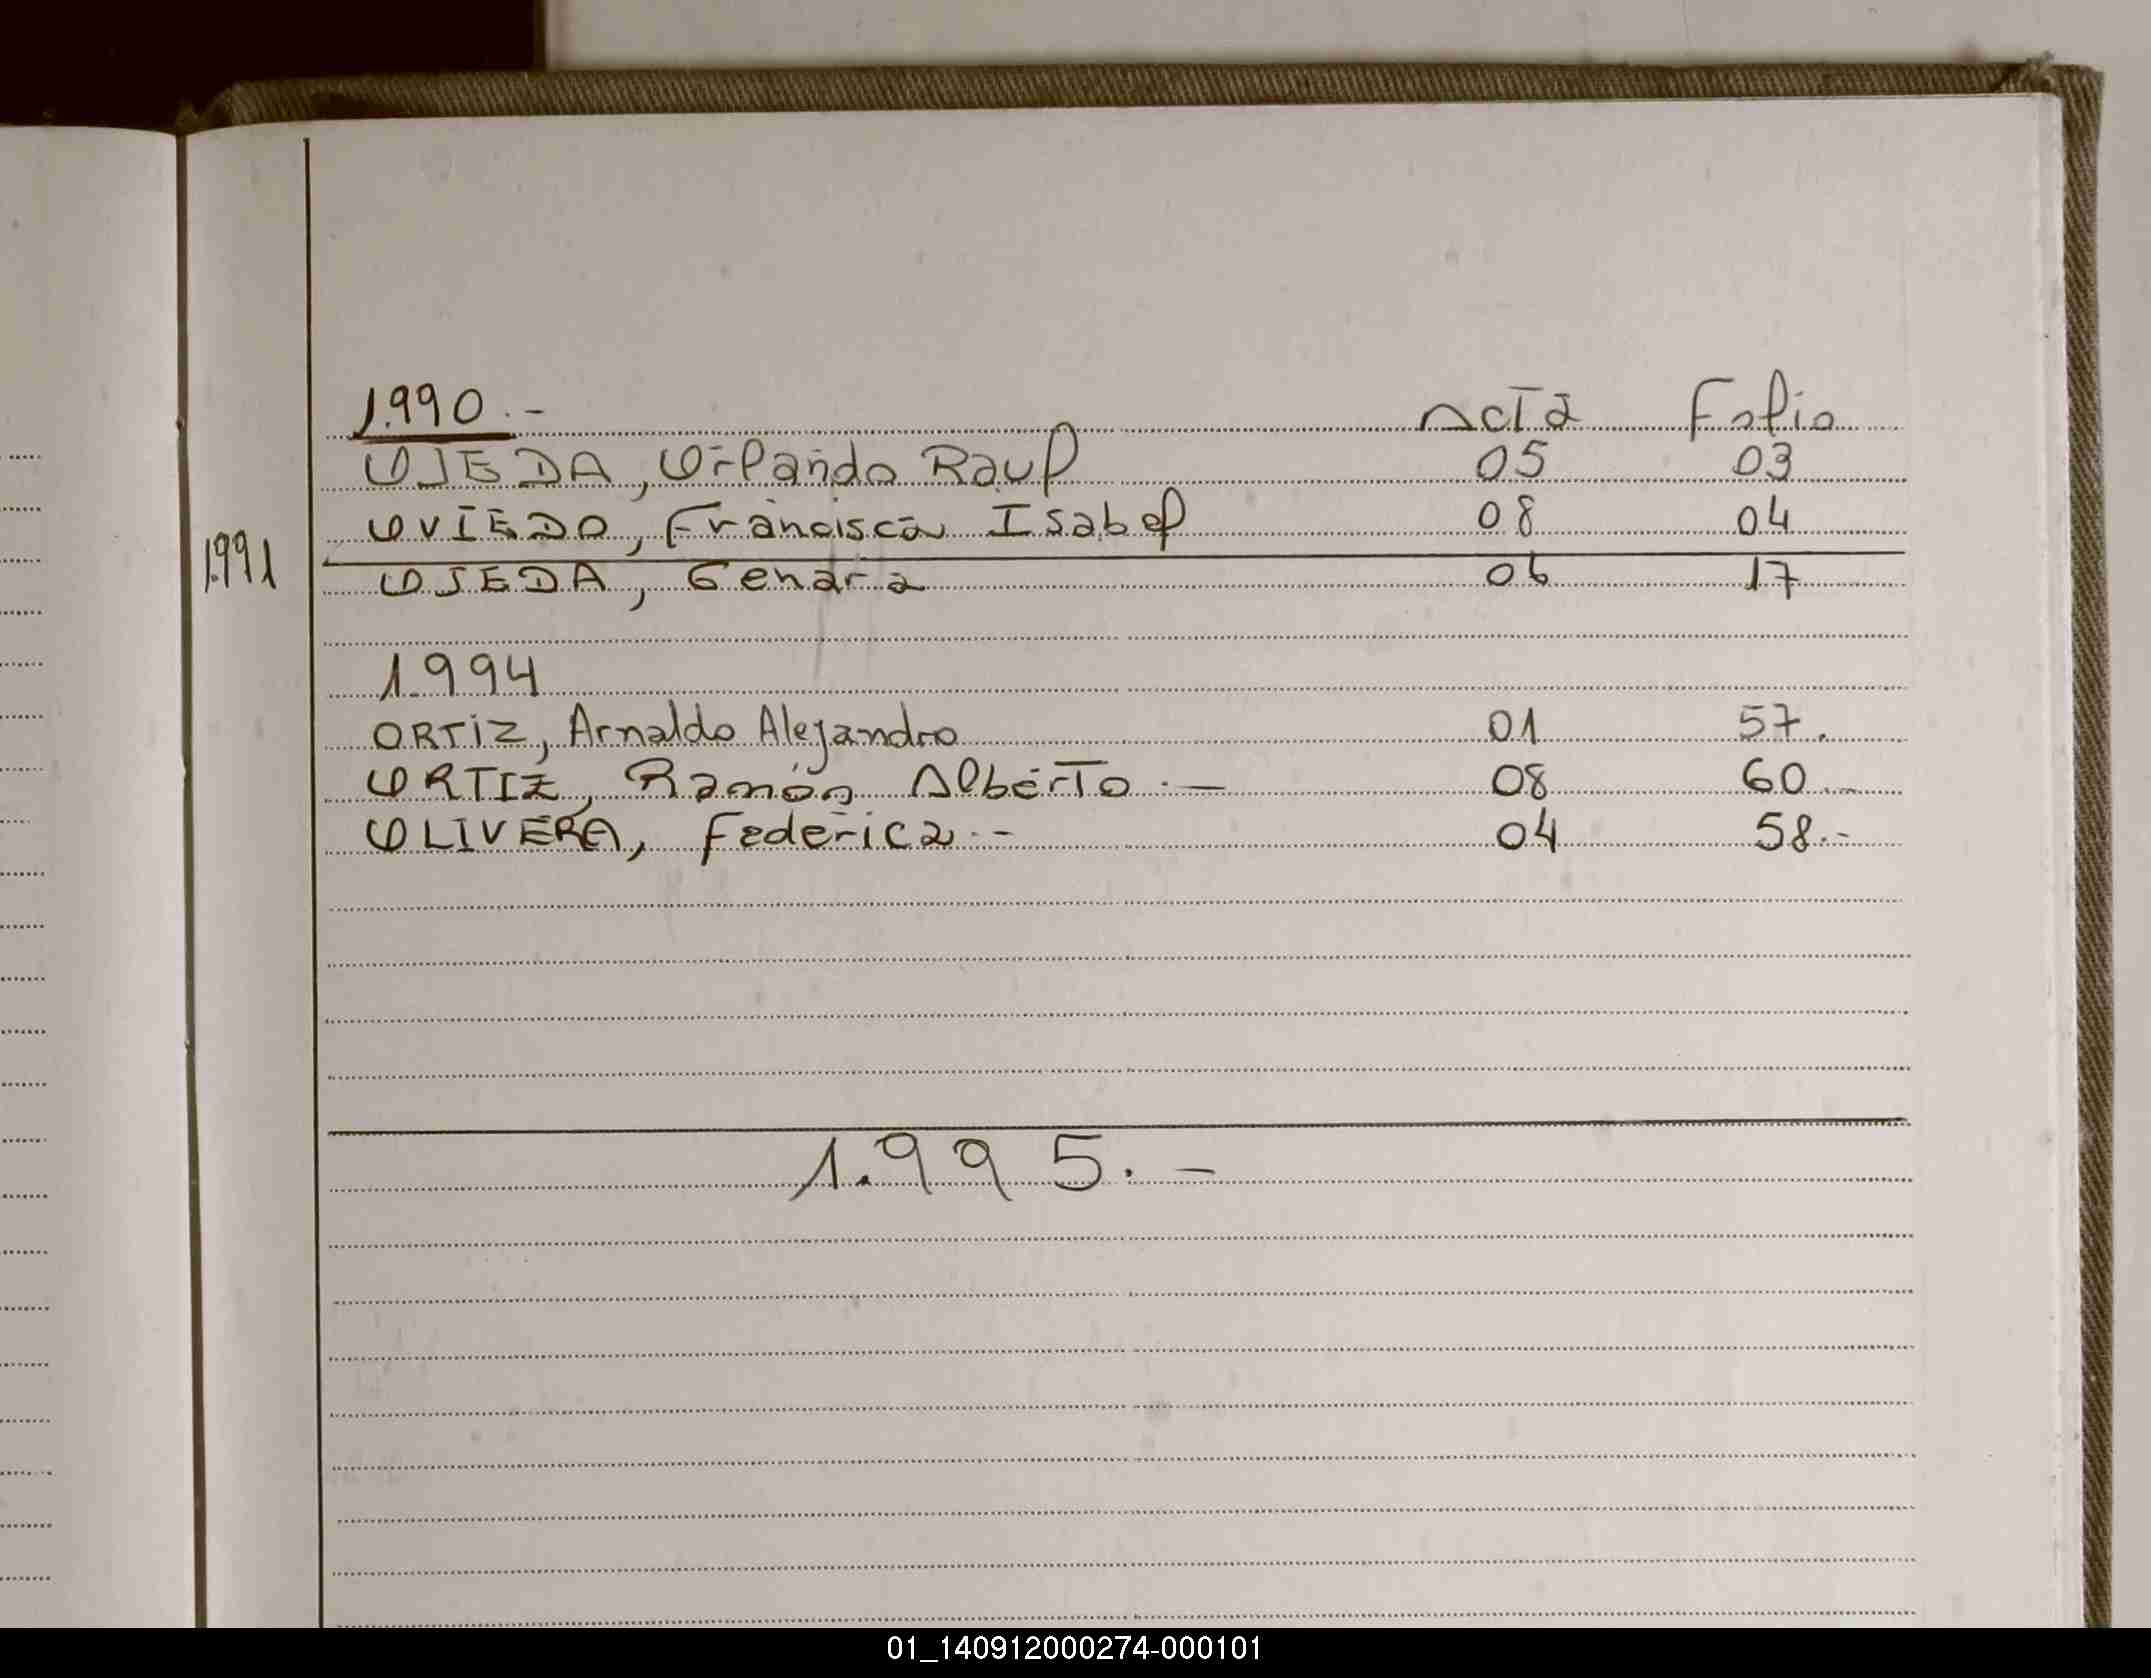 1.990.- Acta Folio
OJEDA, Orlando Raul 05 03
OVIEDO, Francisca Isabel 08 04
1991 OJEDA, Genara 06 17
1994
ORTIZ, Arnaldo Alejandro 01 57.
ORTIZ, Ramón Alberto.- 08 60
OLIVERA, Federica.- 04 58.-
1.995.-
01_140912000274-000101